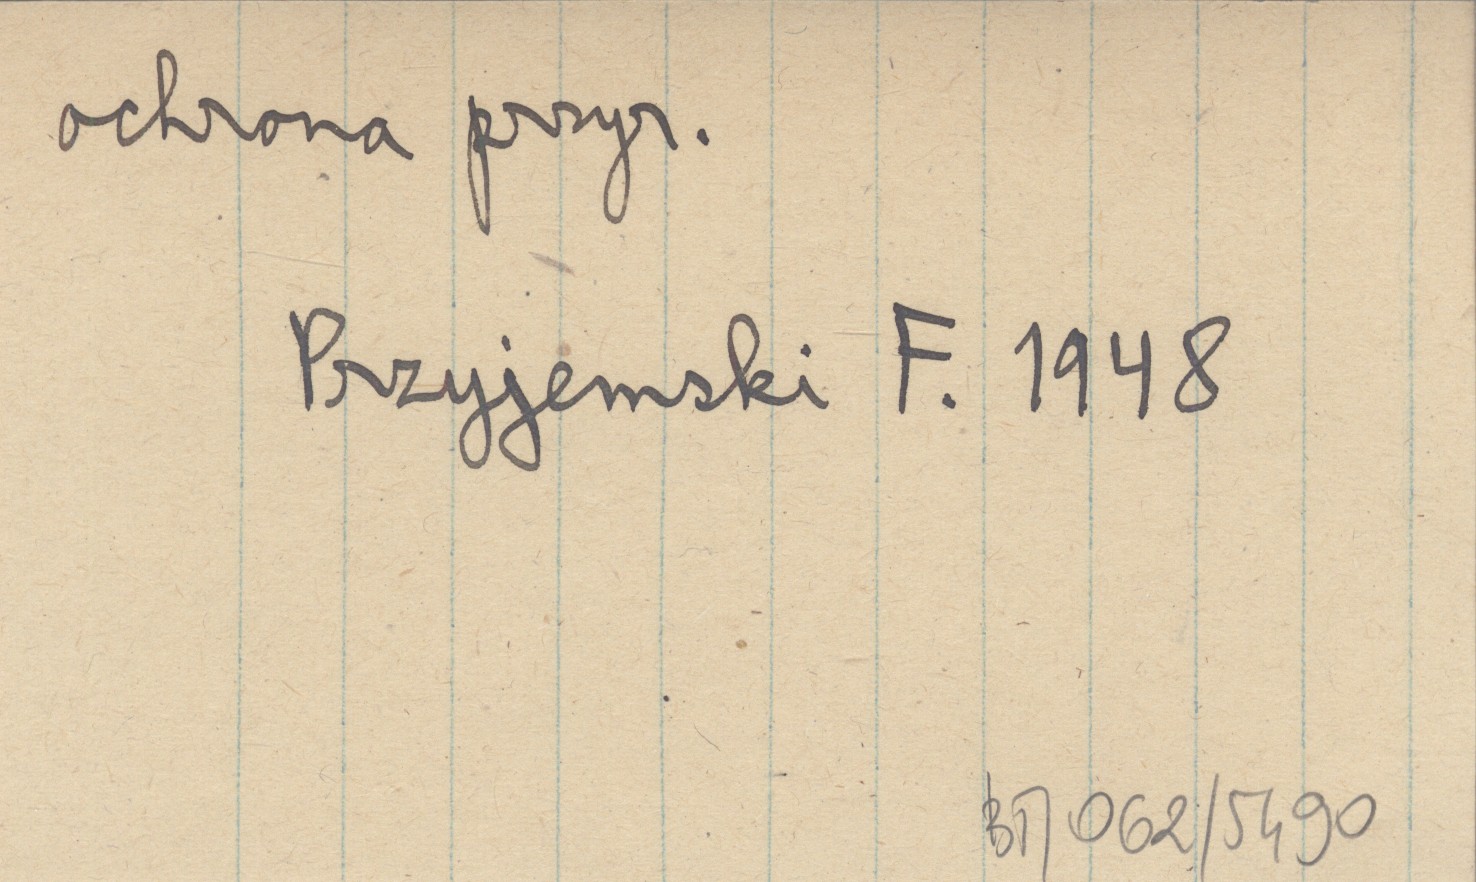 ochrona przyr.
Przyjemski F. 1948
062/5490